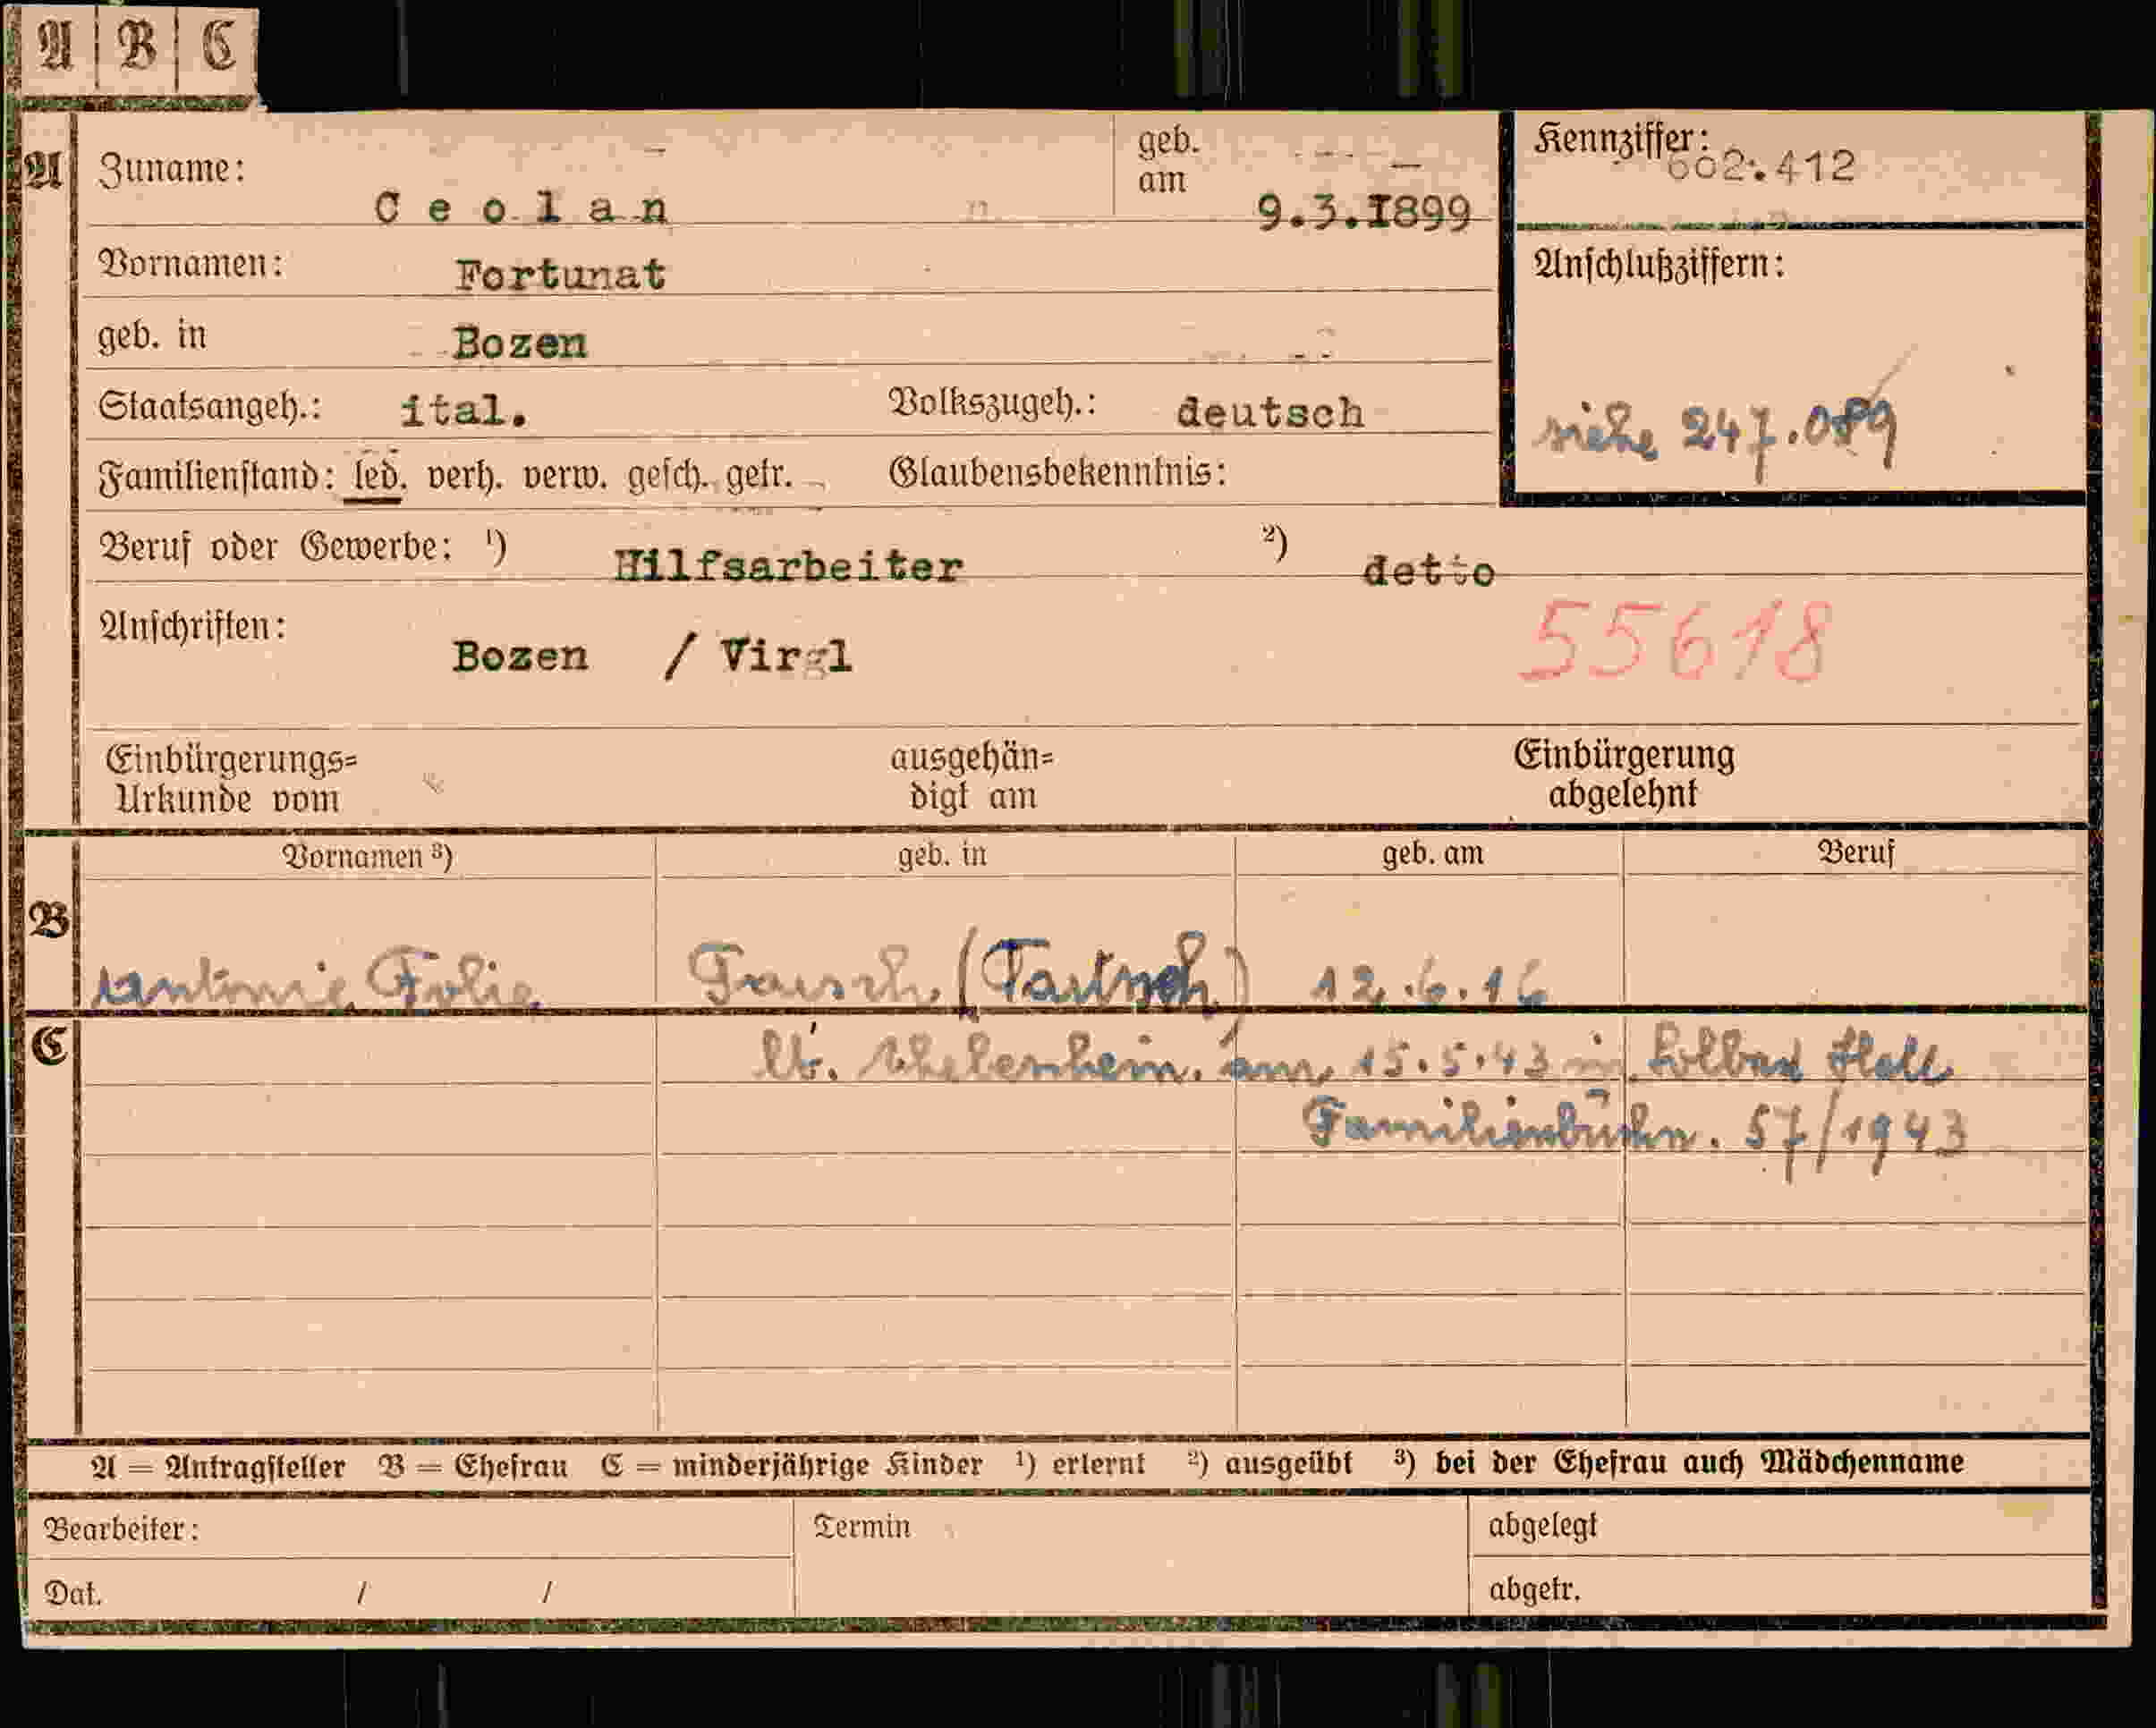 A B C
A Zuname: Ceolan geb. am 9.3.1899 Kennziffer: 602.412
Vornamen: Fortunat Anschlußziffern:
geb. in Bozen
Staatsangeh.: ital. Volkszugeh.: deutsch siehe 247.089
Familienstand: led. verh. verw. gesch. getr. Glaubensbekenntnis:
Beruf oder Gewerbe: ¹) Hilfsarbeiter ²) detto
Anschriften: Bozen / Virgl 55618
Einbürgerungs= Urkunde vom ausgehän= digt am Einbürgerung abgelehnt
Vornamen ³) geb. in geb. am Beruf
B Antonie Folie Tausch (Tartsch) 12.6.16
C lt. Ehelenschein. am 15.5.43 in Solbad Hall
Familienbuchn. 57/1943
A = Antragsteller B = Ehefrau C = minderjährige Kinder ¹) erlernt ²) ausgeübt ³) bei der Ehefrau auch Mädchenname
Bearbeiter: Termin abgelegt
Dat. / / abgetr.